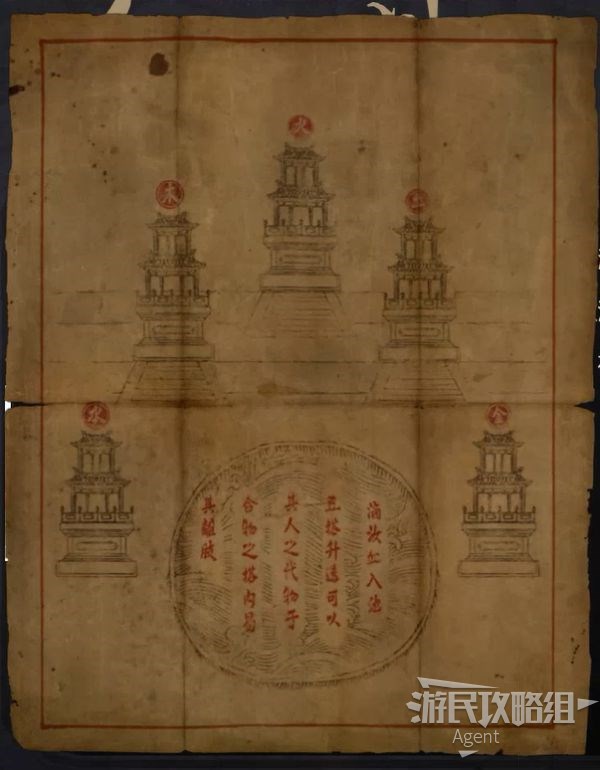 火
木
水
金
滴汝血入池
五塔升可以
其人之代物于
合物之塔内易
其離肢
游民攻略组
Agent